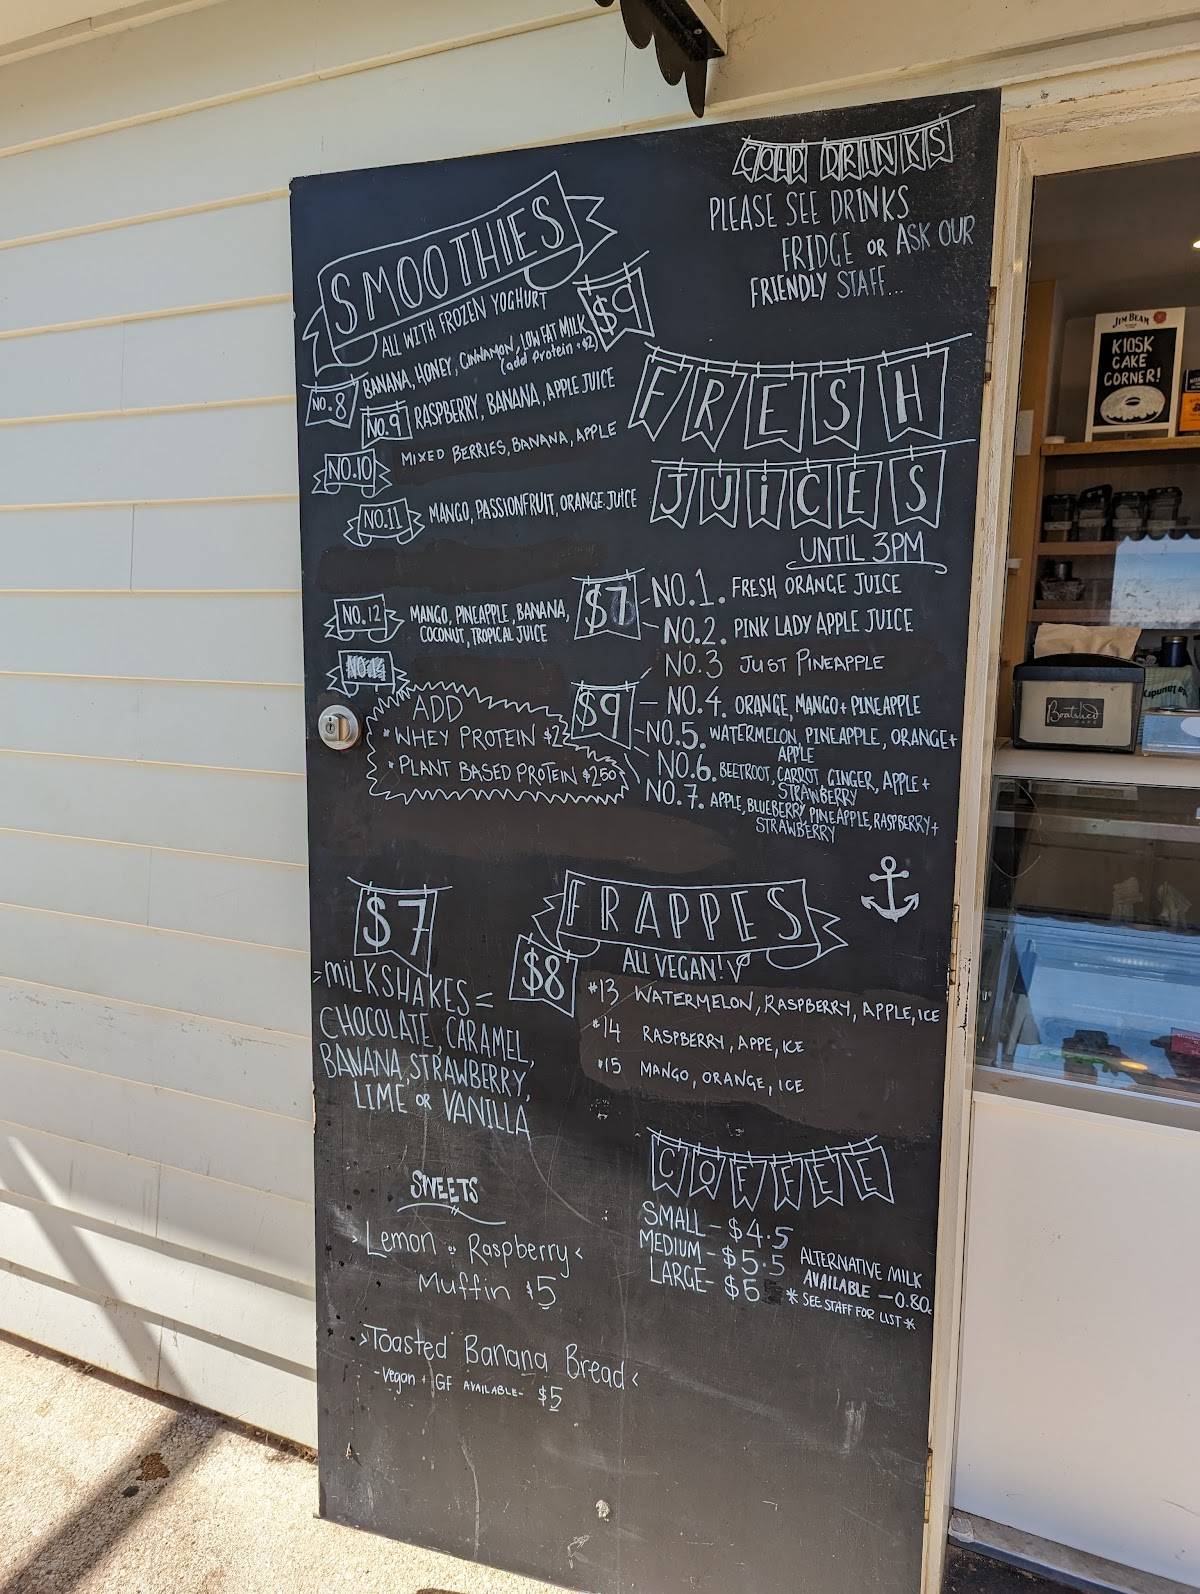 COLD DRINKS
PLEASE SEE DRINKS
FRIDGE OR ASK OUR
FRIENDLY STAFF...
SMOOTHIES
ALL WITH FROZEN YOGHURT
$9
NO.8 BANANA, HONEY, CINNAMON, LOW FAT MILK
(add Protein +$2)
NO.9 RASPBERRY, BANANA, APPLE JUICE
NO.10 MIXED BERRIES, BANANA, APPLE
NO.11 MANGO, PASSIONFRUIT, ORANGE JUICE
NO.12 MANGO, PINEAPPLE, BANANA,
COCONUT, TROPICAL JUICE
ADD
* WHEY PROTEIN $2
* PLANT BASED PROTEIN $2.50
FRESH
JUICES
UNTIL 3PM
$7
NO.1. FRESH ORANGE JUICE
NO.2. PINK LADY APPLE JUICE
$9
NO.3 JUST PINEAPPLE
NO.4. ORANGE, MANGO + PINEAPPLE
NO.5. WATERMELON, PINEAPPLE, ORANGE +
APPLE
NO.6. BEETROOT, CARROT, GINGER, APPLE +
STRAWBERRY
NO.7. APPLE, BLUEBERRY, PINEAPPLE, RASPBERRY +
STRAWBERRY
$7
MILKSHAKES =
CHOCOLATE, CARAMEL,
BANANA, STRAWBERRY,
LIME OR VANILLA
FRAPPES
$8
ALL VEGAN!
#13 WATERMELON, RASPBERRY, APPLE, ICE
#14 RASPBERRY, APPE, ICE
#15 MANGO, ORANGE, ICE
SWEETS
Lemon & Raspberry
Muffin $5
>Toasted Banana Bread<
- Vegan + GF AVAILABLE- $5
COFFEE
SMALL - $4.5
MEDIUM - $5.5
LARGE - $6
ALTERNATIVE MILK
AVAILABLE - 0.80c
* SEE STAFF FOR LIST *
JIM BEAM
KIOSK
CAKE
CORNER!
Boatshed
CAFE